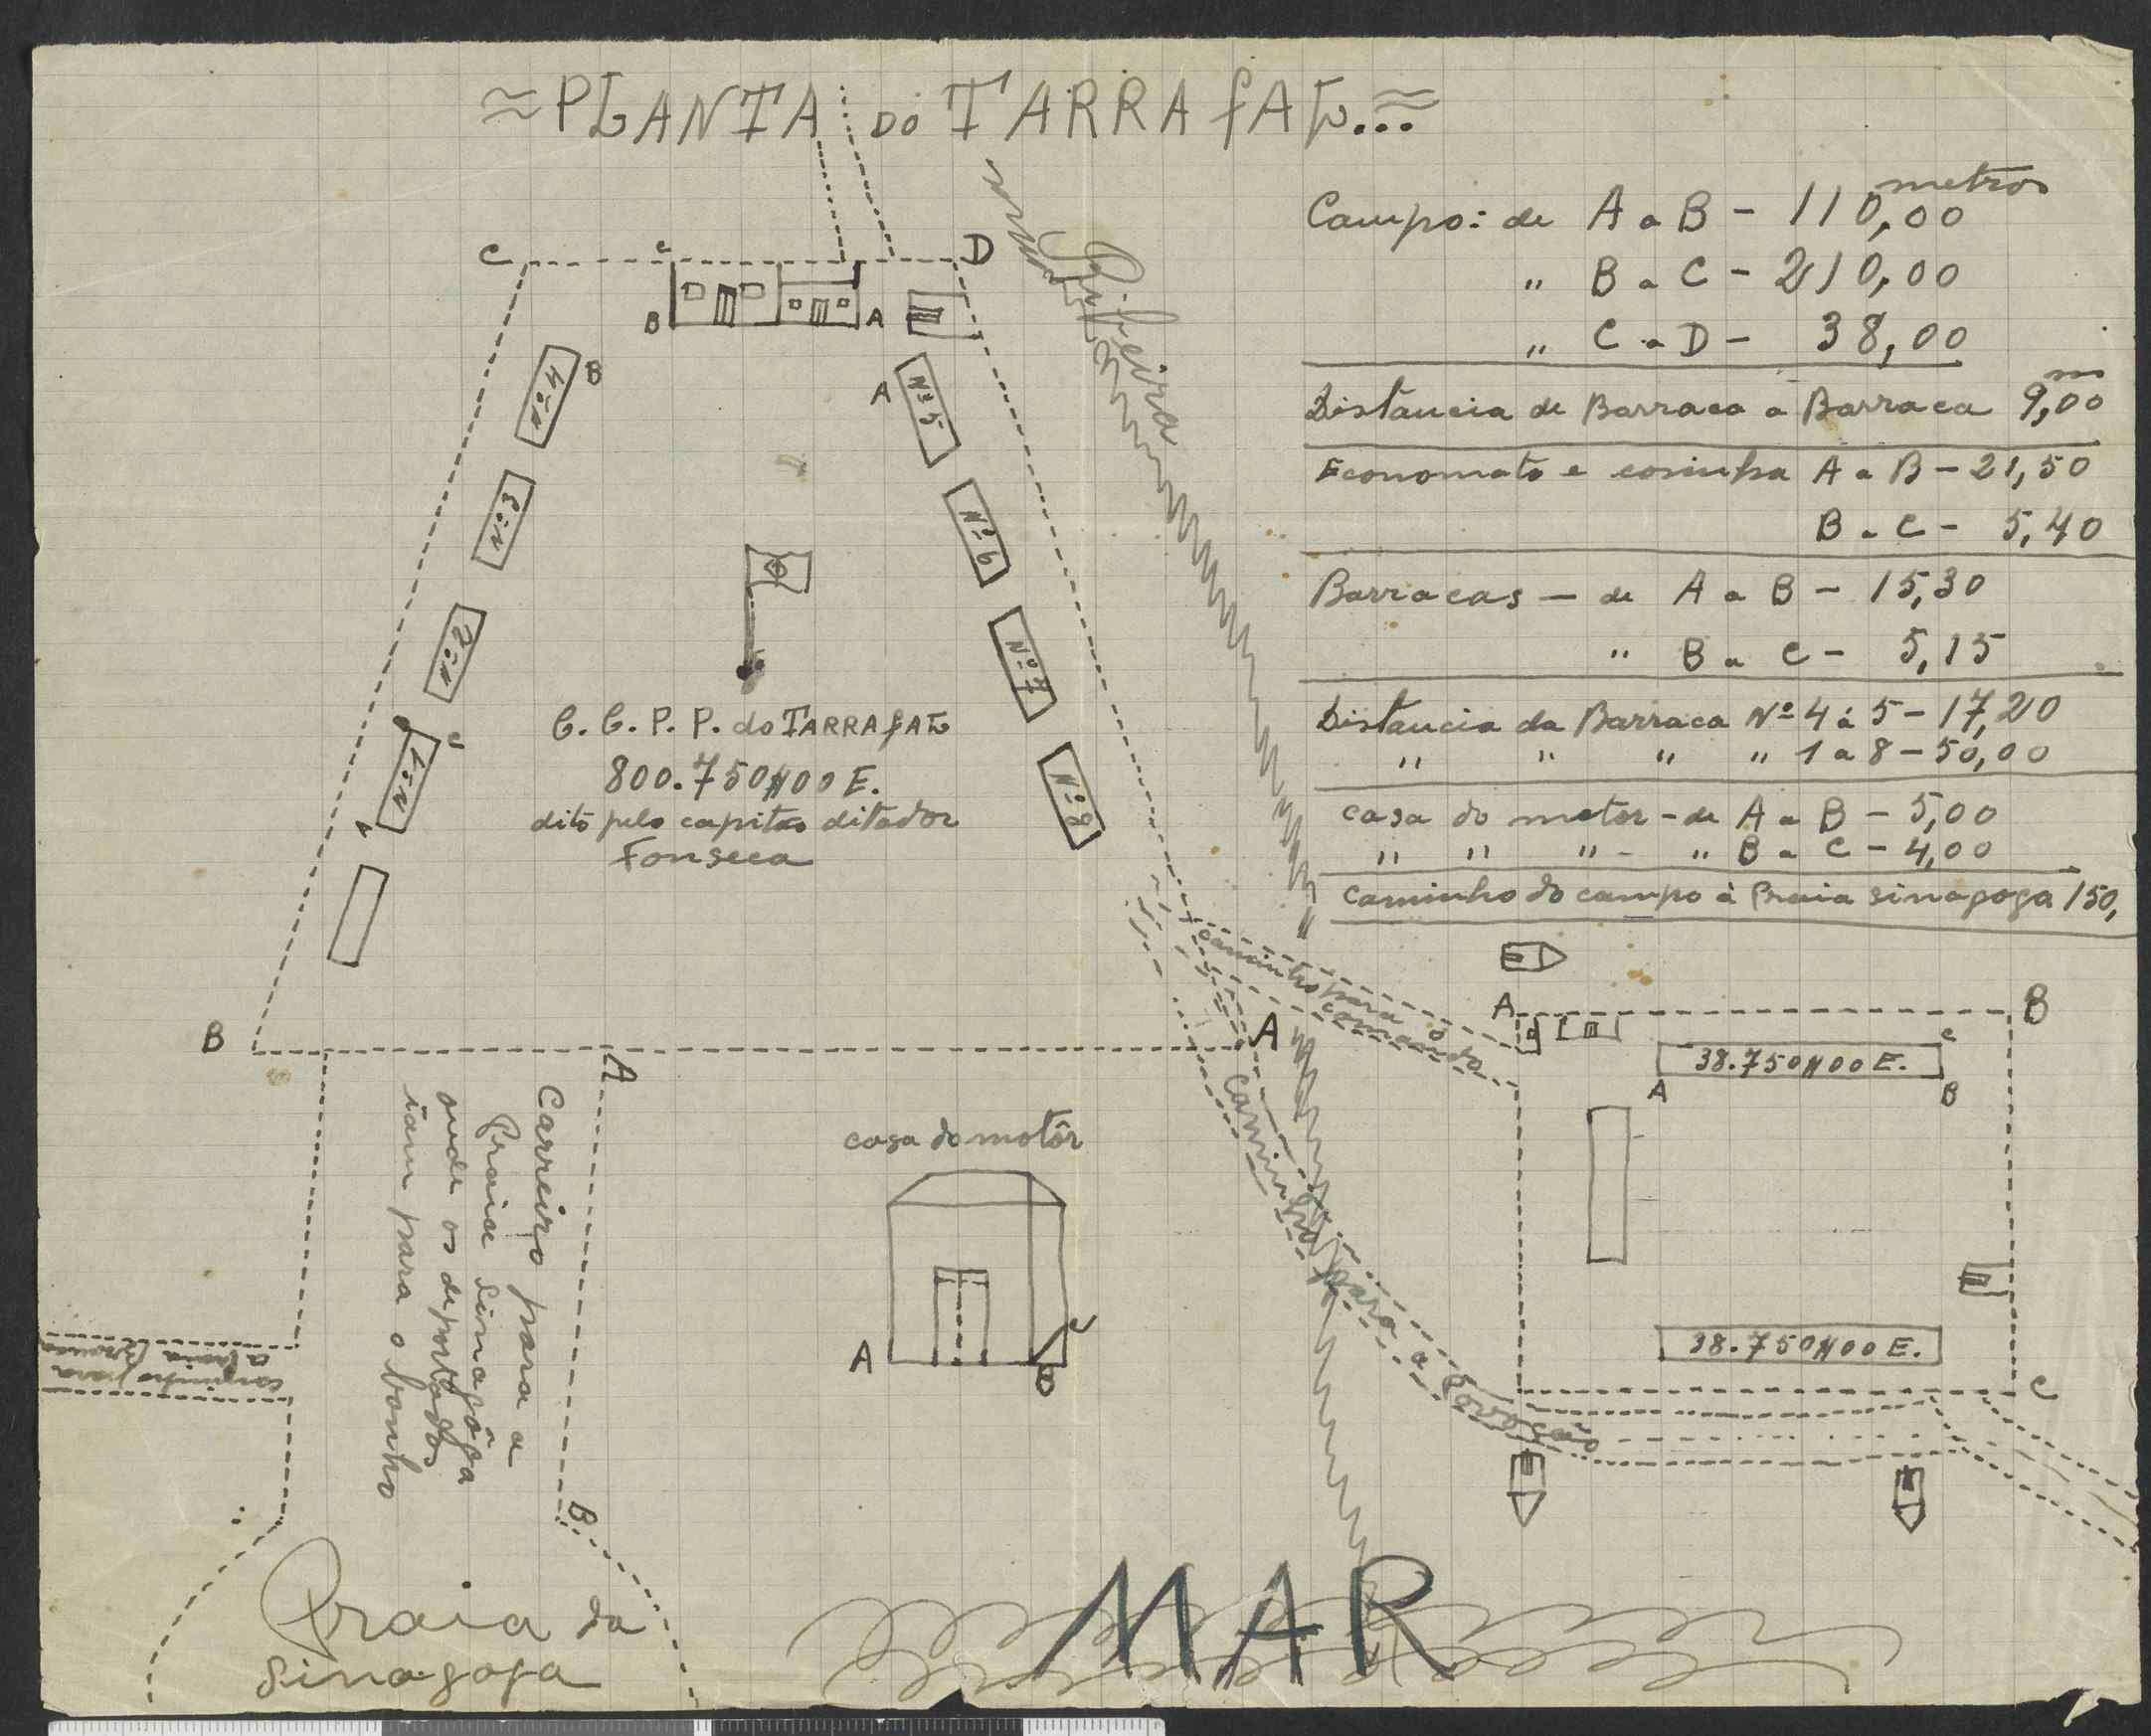 ≈ PLANTA DO TARRAFAL... ≈
Campo: de A a B - 110,00 metros
" B a C - 210,00
" C a D - 38,00
Distância de Barraca a Barraca 9,00 m
Economato e cosinha A a B - 21,50
B a C - 5,40
Barracas - de A a B - 15,30
" B a C - 5,15
Distancia da Barraca Nº 4 á 5 - 17,20
" " " " 1 a 8 - 50,00
casa do motor - de A a B - 5,00
" " " - " B a C - 4,00
Caminho do campo á Praia sinagoga 150,
C
c
D
B
A
Ribeira
Nº 4
B
A
Nº 5
Nº 3
Nº 6
Nº 2
Nº 7
Nº 1
c
A
Nº 8
C. C. P. P. do TARRAFAL
800.750$00 E.
dito pelo capitão ditador
Fonseca
B
A
A
caminho para o
comando
A
B
38.750$00 E.
c
A
B
38.750$00 E.
C
Caminho para a povoação
Carreiro para a
Praia Sinagôga
onde os deportados
iam para o banho
B
casa do motôr
A
B
c
caminho para
a Praia Branca
Praia da
Sinagoga
MAR